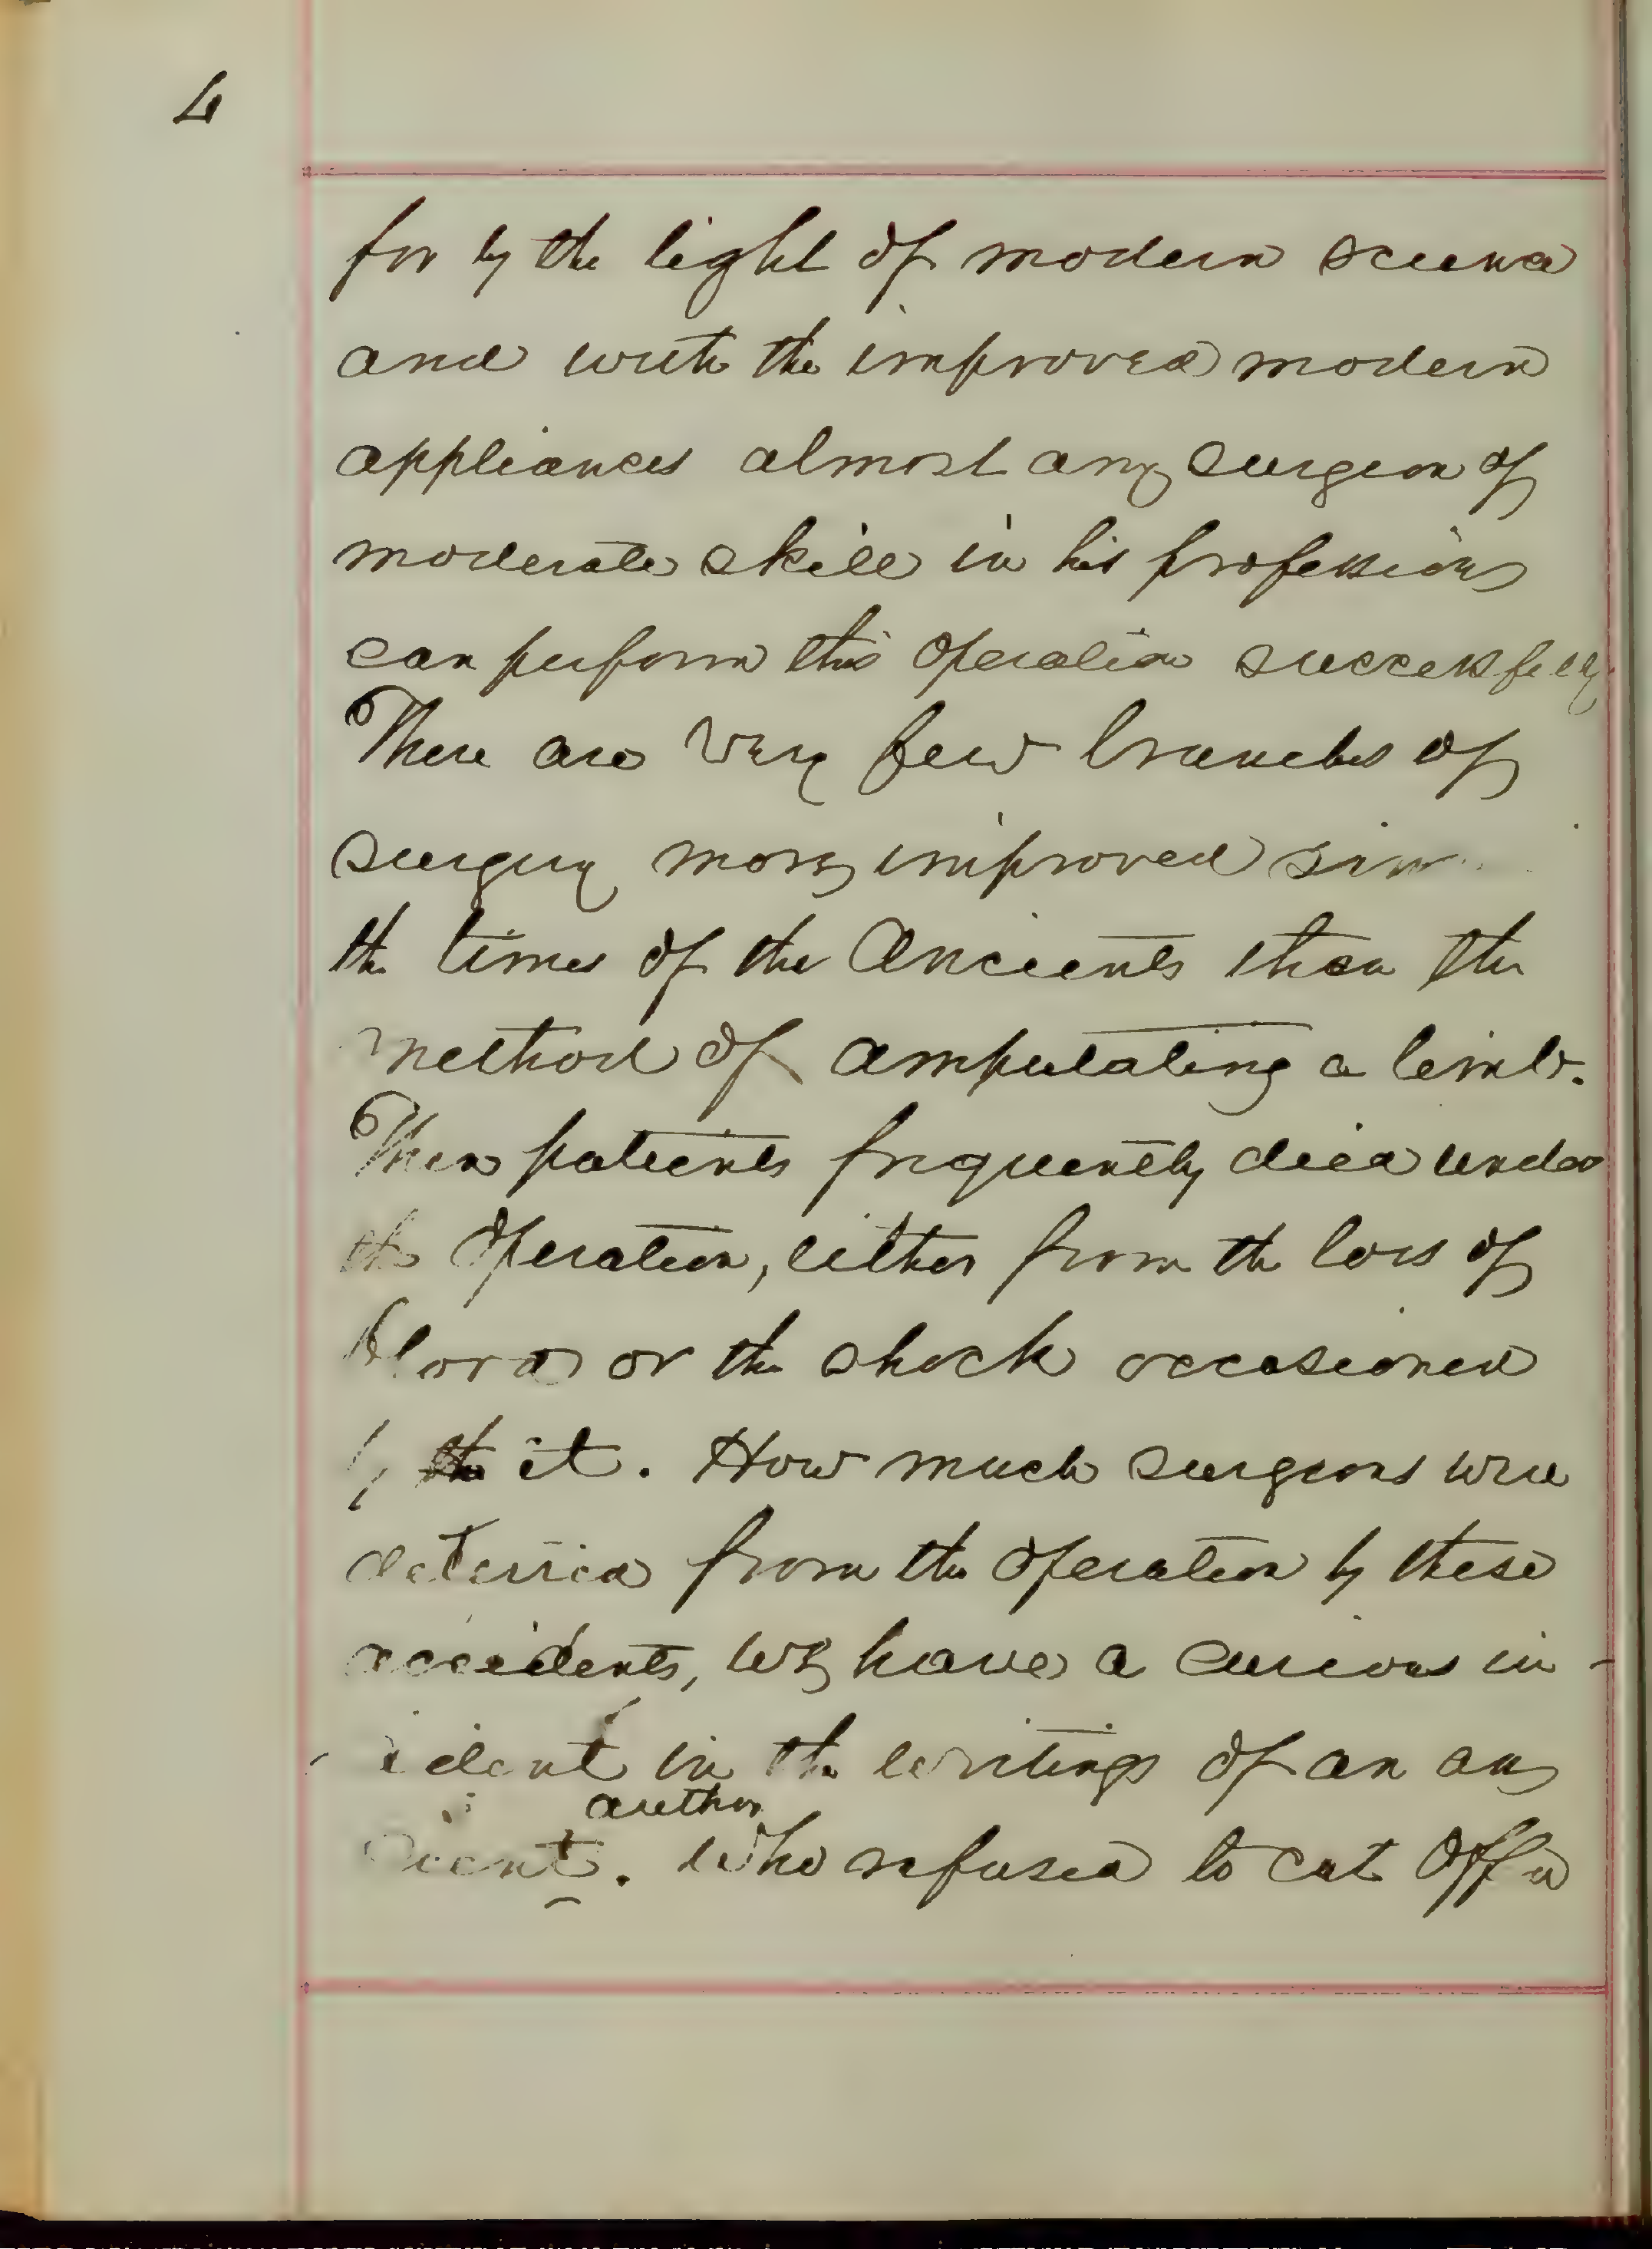 4
for by the light of modern science
and with the improved modern
appliances almost any surgeon of
moderate skill in his profession
can perform this operation successfully
There are very few branches of
surgery more improved since
the times of the Ancients than the
method of amputating a limb.
Then patients frequently died under
the operation, either from the loss of
blood or the shock occasioned
by the it. How much surgeons were
deterred from the operation by these
accidents, we have a curious in-
cident in the writings of an an
author
cient. Who refused to cut off a